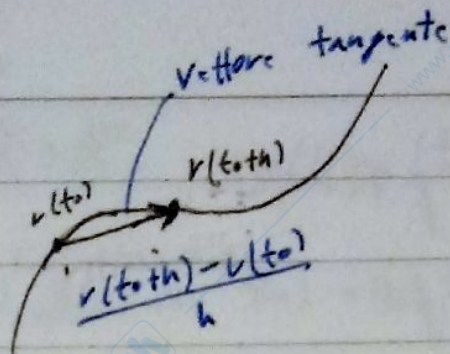 vettore tangente
r(t₀)
r(t₀+h)
r(t₀+h) - r(t₀)
h